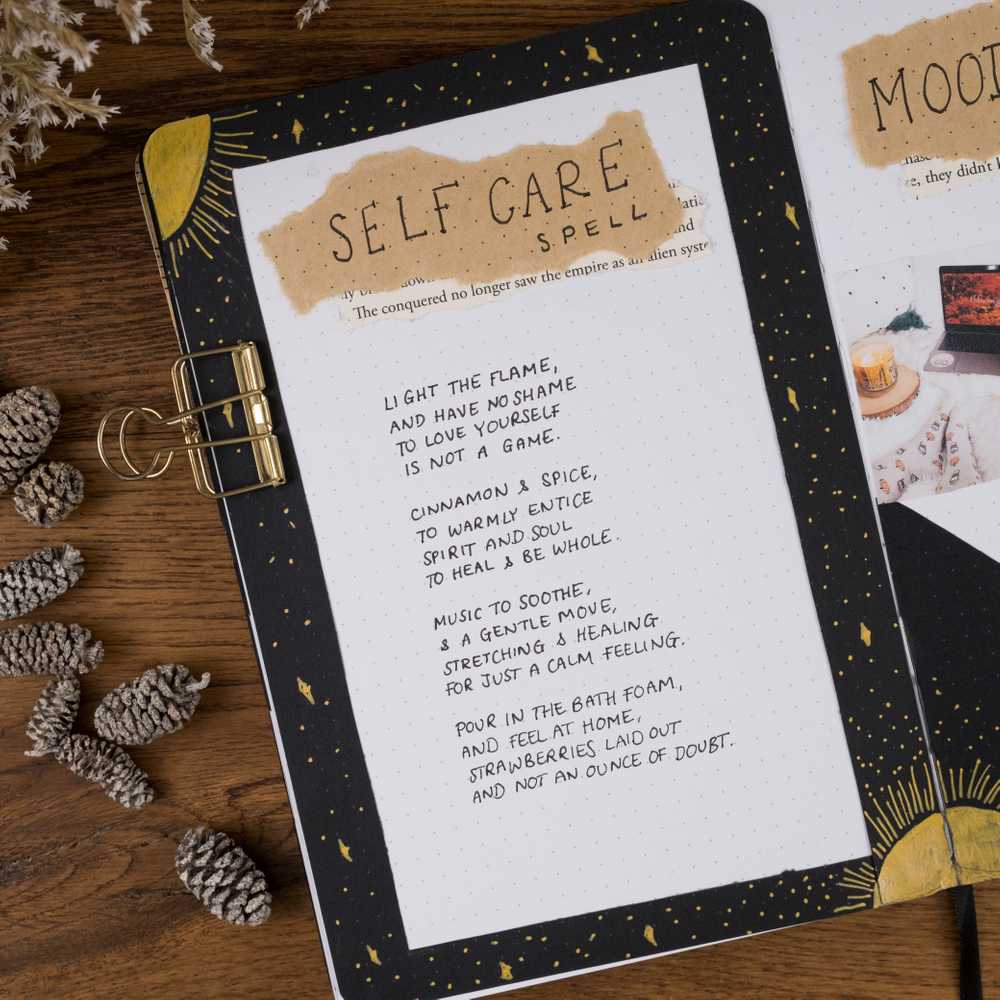 SELF CARE
SPELL
The conquered no longer saw the empire as an alien
LIGHT THE FLAME,
AND HAVE NO SHAME
TO LOVE YOURSELF
IS NOT A GAME.
CINNAMON & SPICE,
TO WARMLY ENTICE
SPIRIT AND SOUL
TO HEAL & BE WHOLE.
MUSIC TO SOOTHE,
& A GENTLE MOVE,
STRETCHING & HEALING
FOR JUST A CALM FEELING.
POUR IN THE BATH FOAM,
AND FEEL AT HOME,
STRAWBERRIES LAID OUT
AND NOT AN OUNCE OF DOUBT.
MOO
they didn't